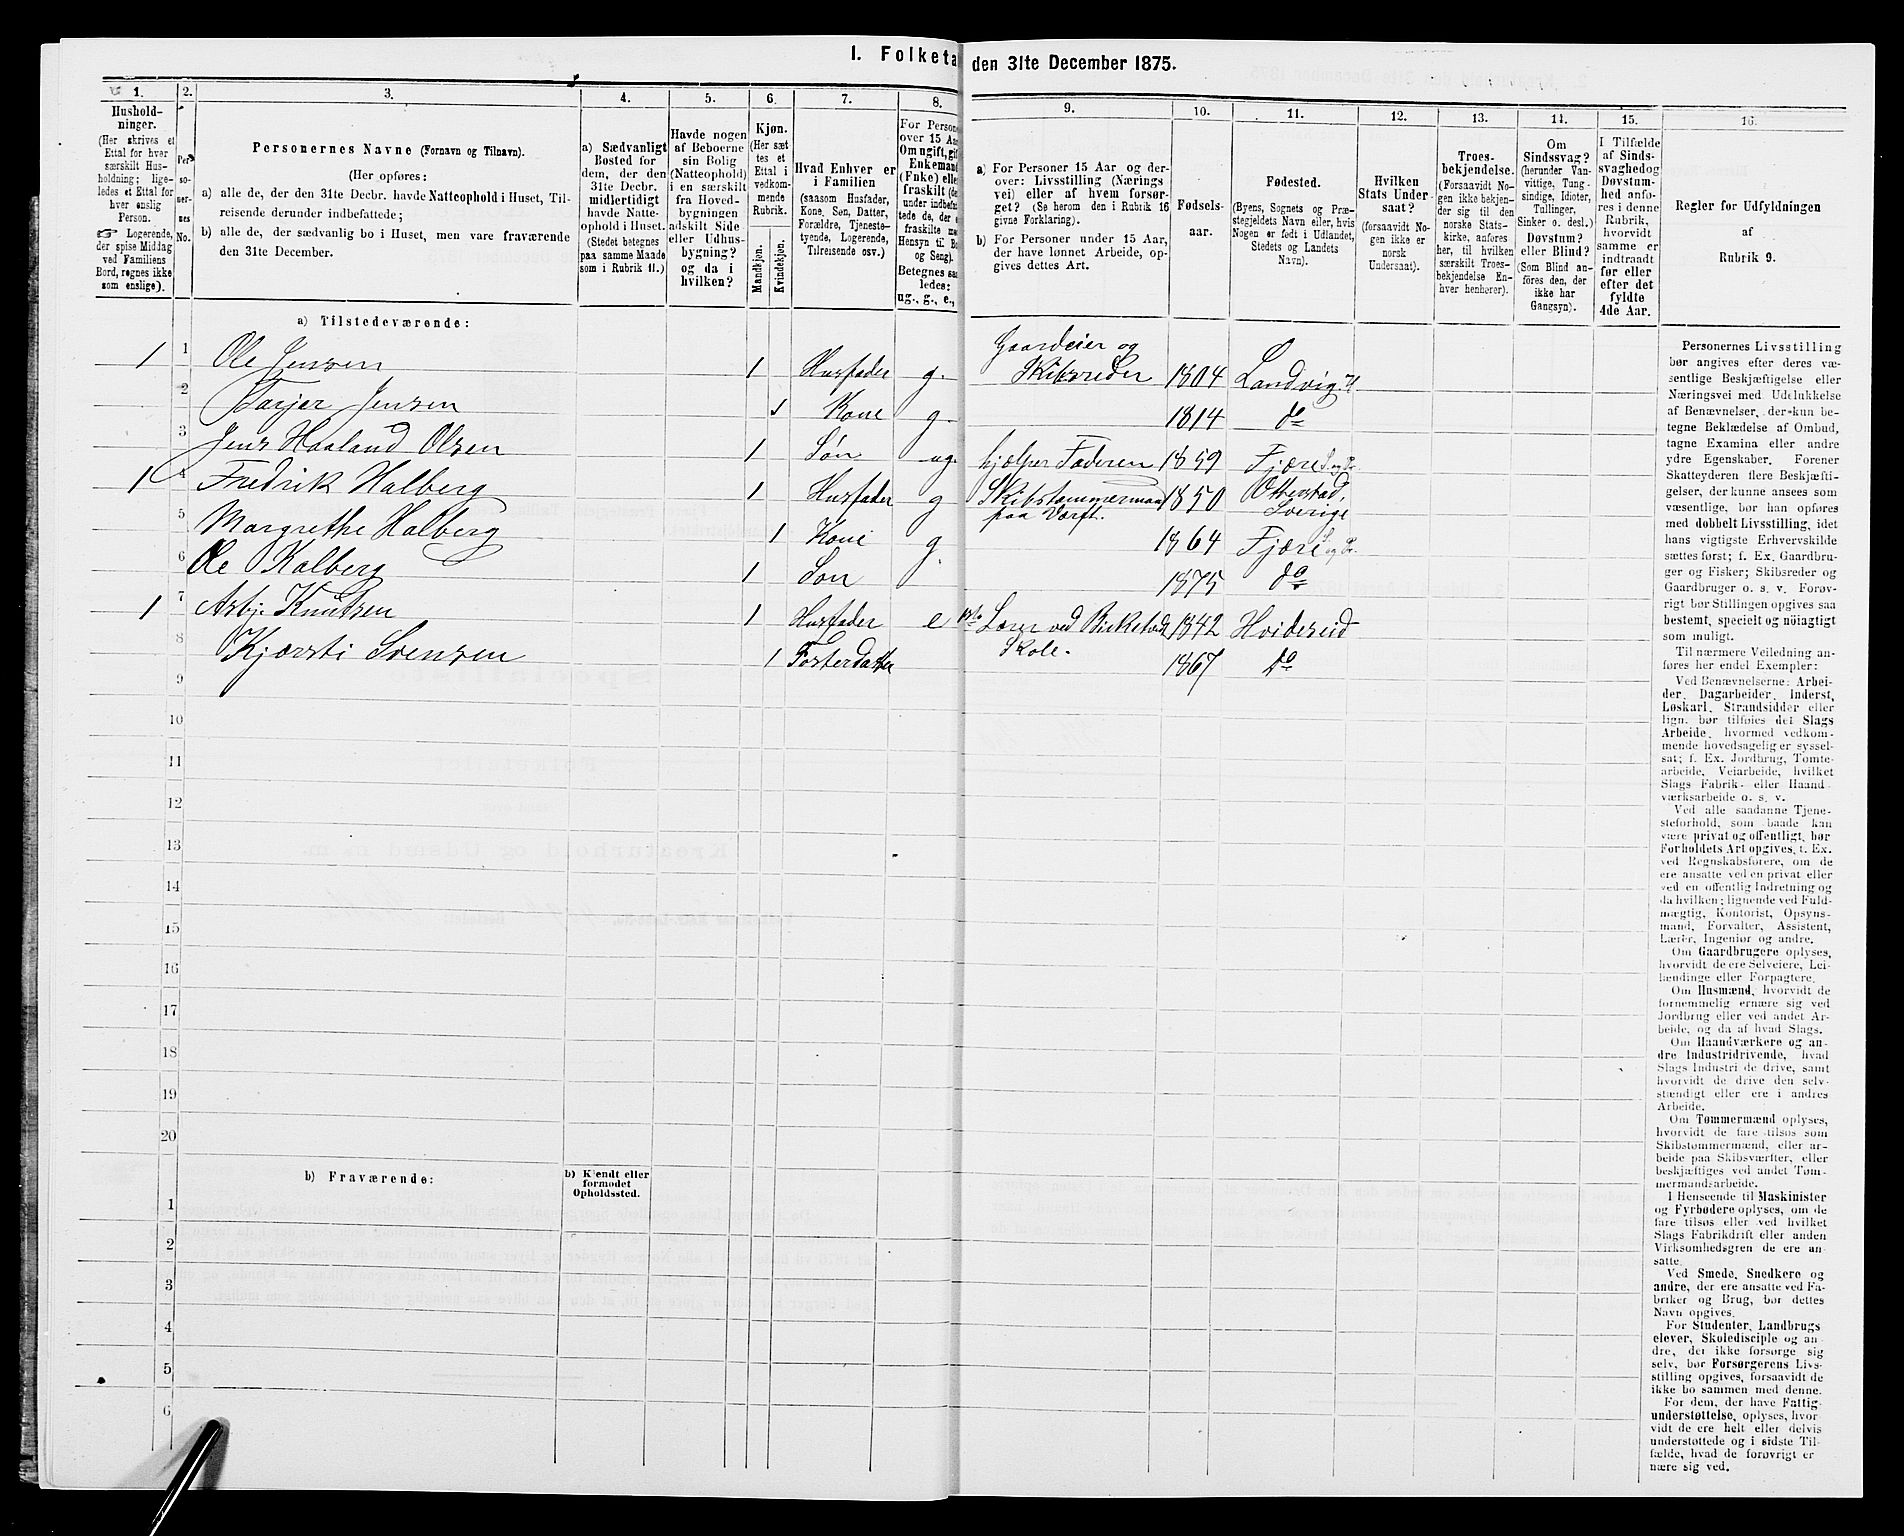 1. Folketa
den 31te December 1875.
1.
Hushold-
ninger.
(Her skrives et
Ettal for hver
særskilt Hus-
holdning; lige-
ledes et Ettal for
hver enslig
Person.
☞ Logerende,
der spise Middag
ved Familiens
Bord, regnes ikke
som enslige).
2.
Per-
so-
ner-
nes
No.
3.
Personernes Navne (Fornavn og Tilnavn).
(Her opføres:
a) alle de, der den 31te Decbr. havde Natteophold i Huset, Til-
reisende derunder indbefattede;
b) alle de, der sædvanlig bo i Huset, men vare fraværende
den 31te December.
4.
a) Sædvanligt
Bosted for
dem, der den
31te Decbr.
midlertidigt
havde Natte-
ophold i Huset.
(Stedet betegnes
paa samme Maade
som i Rubrik 11.)
5.
Havde nogen
af Beboerne
sin Bolig
(Natteophold)
i en særskilt
fra Hoved-
bygningen
adskilt Side
eller Udhus-
bygning?
og da i
hvilken?
6.
Kjøn.
(Her sæt
tes et
Ettal i
vedkom-
mende
Rubrik.
Mandkjøn.
Kvindekjøn.
7.
Hvad Enhver er
i Familien
(saasom Husfader,
Kone, Søn, Datter,
Forældre, Tjeneste-
tyende, Logerende,
Tilreisende osv.)
8.
For Person
over 15 Aa
Om ugift, gif
Enkemand
(Enke) elle
fraskilt (de
under indbefat
tede de, der e
fraskilte me
Hensyn til Bo
og Seng).
Betegnes saa
ledes:
ug., g., e.,
9.
a) For Personer 15 Aar og der-
over: Livsstilling (Nærings
vei) eller af hvem forsør-
get? (Se herom den i Rubrik 16
givne Forklaring).
b) For Personer under 15 Aar,
der have lønnet Arbeide, op-
gives dettes Art.
10.
Fødsels-
aar.
11.
Fødested.
(Byens, Sognets og Præ-
stegjeldets Navn eller, hvis
Nogen er født i Udlandet,
Stedets og Landets
Navn).
12.
Hvilken
Stats Under
saat?
(forsaavidt No-
gen ikke er
norsk
Undersaat).
13.
Troes-
bekjendelse.
(Forsaavidt No-
gen ikke bekjen-
der sig til den
norske Stats-
kirke, anføres
her, til hvilken
særskilt Troes-
bekjendelse En-
hver henhører).
14.
Om
Sindssvag?
(herunder Van-
vittige, Tung-
sindige, Idioter,
Tullinger,
Sinker o. desl.)
Døvstum?
eller Blind?
(Som Blind an-
føres den, der
ikke har
Gangsyn).
15.
I Tilfælde
af Sinds-
svaghed og
Døvstum-
hed anfø-
res i denne
Rubrik,
hvorvidt
samme er
indtraadt
før eller
efter det
fyldte
4de Aar.
16.
Regler for Udfyldningen
af
Rubrik 9.
a) Tilstedeværende:
1 1 Ole Jensen 1 Husfader g. Gaardeier og
Skibsreder 1804 Landvig
2 Tarjer Jensen 1 Kone g. 1814 do
3 Jens Haaland Olsen 1 Søn ug. hjælper Faderen 1859 Fjære S. og Pr.
1 4 Fredrik Halberg 1 Husfader g Skibstømmermand
paa Værft. 1850 Otterstad,
Sverige
5 Margrethe Halberg 1 Kone g. 1864 Fjære S. og Pr.
6 Ole Halberg 1 Søn 1875 do
1 7 Asbj. Knutsen 1 Husfader e Lærer ved Birketvedt
Skole. 1842 Hvideseid
8 Kjærsti Svensen 1 Fosterdatter 1867 do
9
10
11
12
13
14
15
16
17
18
19
20
b) Fraværende:
b) Kjendt eller
formodet
Opholdssted.
1
2
3
4
5
6
Personernes Livsstilling
bør angives efter deres væ-
sentlige Beskjæftigelse eller
Næringsvei med Udelukkelse
af Benævnelser, der kun be-
tegne Beklædelse af Ombud,
tagne Examina eller andre
ydre Egenskaber. Forener
Skatteyderen flere Beskjæfti-
gelser, der kunne ansees som
væsentlige, bør han opføres
med dobbelt Livsstilling, idet
hans vigtigste Erhvervskilde
sættes først; f. Ex. Gaardbru-
ger og Fisker; Skibsreder og
Gaardbruger o. s. v. Forøv-
rigt bør Stillingen opgives saa
bestemt, specielt og nøiagtigt
som muligt.
Til nærmere Veiledning an-
føres her endel Exempler:
Ved Benævnelserne: Arbei-
der, Dagarbeider, Inderst,
Løskarl, Strandsidder eller
lign. bør tilføies det Slags
Arbeide, hvormed vedkom-
mende hovedsagelig er syssel-
sat; f. Ex. Jordbrug, Tomte-
arbeide, Veiarbeide, hvilket
Slags Fabrik- eller Haand-
værksarbeide o. s. v.
Ved alle saadanne Tjene-
steforhold, som baade kan
være privat og offentligt, bør
Forholdets Art opgives, f. Ex.
ved Regnskabsførere, om de
ere ansatte ved en privat eller
ved en offentlig Indretning og
da hvilken; lignende ved Fuld-
mægtig, Kontorist, Opsyns-
mand, Forvalter, Assistent,
Lærer, Ingeniør og andre.
Om Gaardbrugere oplyses,
hvorvidt de ere Selveiere, Lei-
lændinge eller Forpagtere.
Om Husmænd, hvorvidt de
fornemmelig ernære sig ved
Jordbrug eller ved andet Ar-
beide, og da af hvad Slags.
Om Haandværkere og an-
dre Industridrivende, hvad
Slags Industri de drive, samt
hvorvidt de drive den selv-
stændigt eller ere i andres
Arbeide.
Om Tømmermænd oplyses,
hvorvidt de fare tilsøs som
Skibstømmermænd, eller ar-
beide paa Skibsværfter, eller
beskjæftiges ved andet Tøm-
mermandsarbeide.
I Henseende til Maskinister
og Fyrbødere oplyses, om de
fare tilsøs eller ved hvilket
Slags Fabrikdrift eller anden
Virksomhedsgren de ere an-
satte.
Ved Smede, Snedkere og
andre, der ere ansatte ved Fa-
briker og Brug, bør dettes
Navn opgives.
For Studenter, Landbrugs
elever, Skoledisciple og an-
dre, der ikke forsørge sig
selv, bør Forsørgerens Livs-
stilling opgives, forsaavidt de
ikke bo sammen med denne.
For dem, der have Fattig-
understøttelse, oplyses, hvor-
vidt de ere helt eller delvis
understøttede og i sidste Til-
fælde, hvad de forøvrigt er-
nære sig ved.